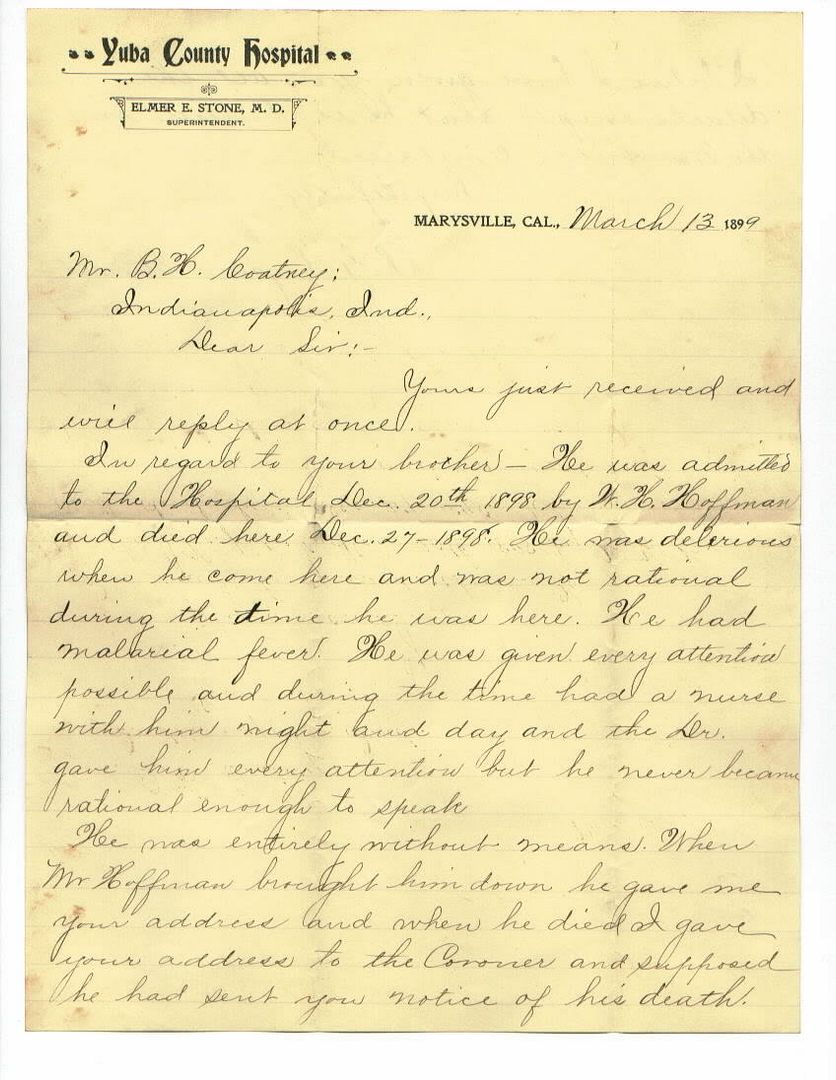 Yuba County Hospital
ELMER E. STONE, M. D.
SUPERINTENDENT.
MARYSVILLE, CAL., March 13 1899
Mr. B. H. Coatney:
Indianapolis, Ind.,
Dear Sir:-
Yours just received and
will reply at once.
In regard to your brother – He was admitted
to the Hospital Dec. 20th 1898 by W. H. Hoffman
and died here Dec. 27-1898. He was delerious
when he come here and was not rational
during the time he was here. He had
malarial fever. He was given every attention
possible and during the time had a nurse
with him night and day and the Dr.
gave him every attention but he never became
rational enough to speak
He was entirely without means. When
Mr Hoffman brought him down he gave me
your address and when he died I gave
your address to the Coroner and supposed
he had sent you notice of his death.